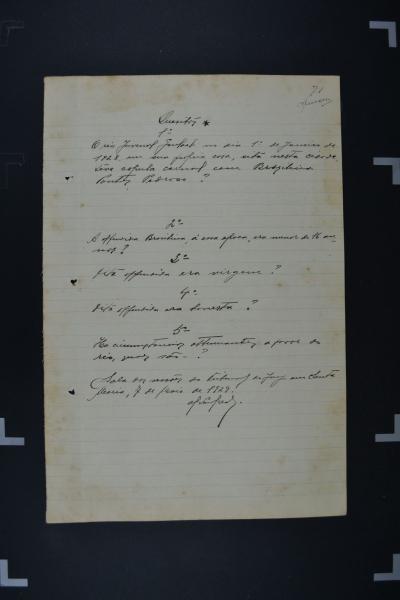 Quesitos
1º
O réo Juvenal no dia 1º de Janeiro de
1928, em sua propria casa, sita nesta cidade,
teve copula carnal com Brazilina
Pontes Pedroso ?
2º
A offendida Brazilina, á essa epoca, era menor de 16 an-
nos ?
3º
Esta offendida era virgem ?
4º
Esta offendida era honesta ?
5º
Ha circumstancias attenuantes a favor do
réo, quaes são ?
Sala das sessões do tribunal do Jury em Santa
Maria, 7 de Maio de 1929.